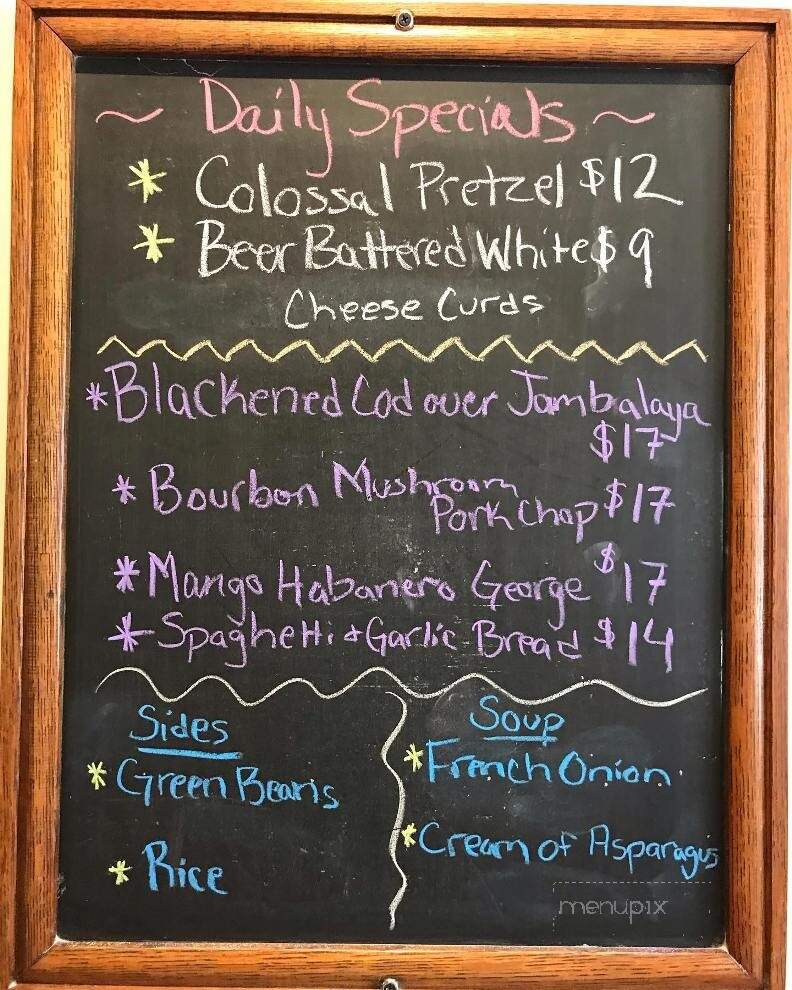 ~ Daily Specials ~
* Colossal Pretzel $12
* Beer Battered White $9
Cheese Curds
* Blackened Cod over Jambalaya
$17
* Bourbon Mushroom
Pork Chop $17
* Mango Habanero George $17
* Spaghetti + Garlic Bread $14
Sides
* Green Beans
* Rice
Soup
* French Onion
* Cream of Asparagus
menupix